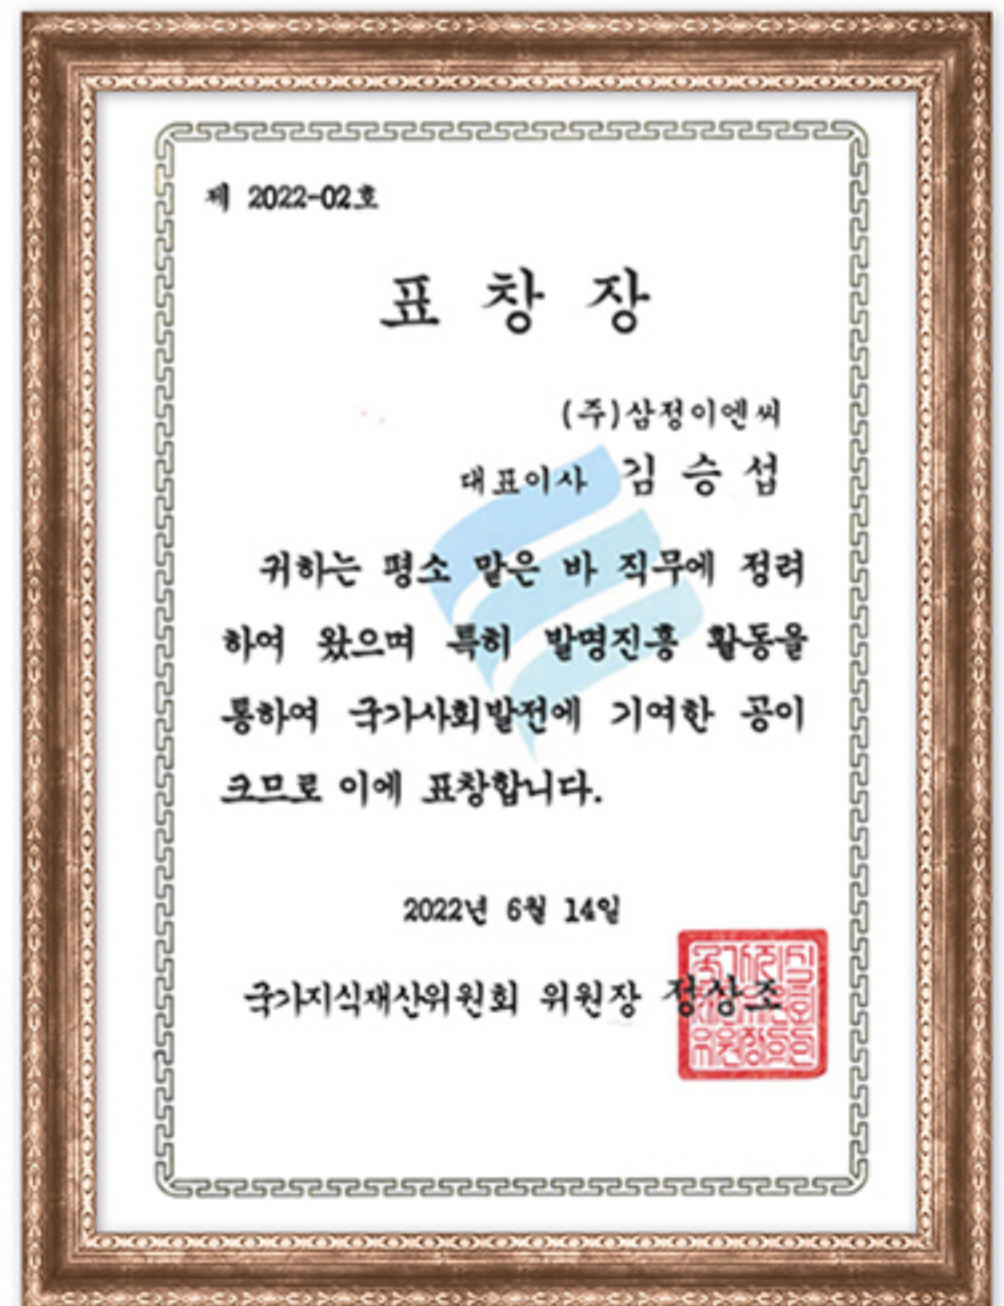 제 2022-02호
표 창 장
(주)삼정이엔씨
대표이사 김 승 섭
귀하는 평소 맡은 바 직무에 정려
하여 왔으며 특히 발명진흥 활동을
통하여 국가사회발전에 기여한 공이
크므로 이에 표창합니다.
2022년 6월 14일
국가지식재산위원회 위원장 정상조